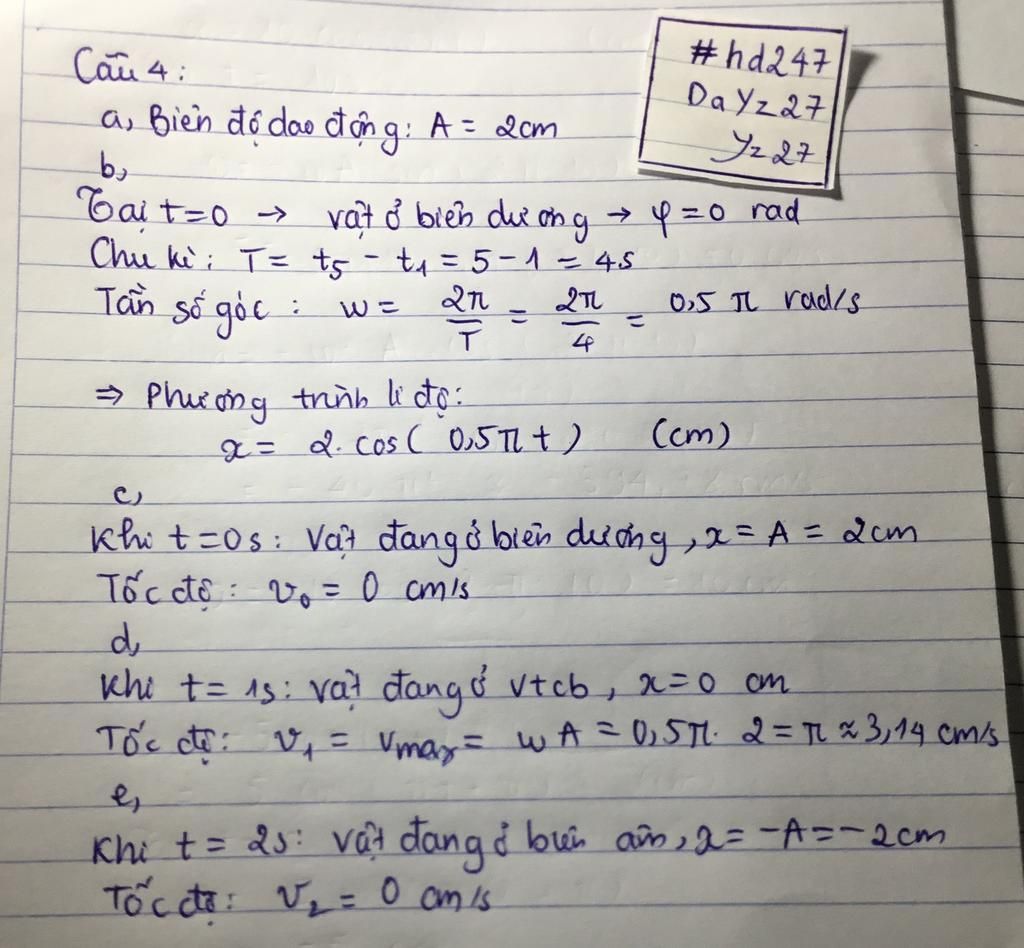 Câu 4:
#hd247
DaYz27
Yz27
a, Biên độ dao động: A = 2cm
b,
Tại t=0 → vật ở biên dương → φ=0 rad
Chu kì: T = t₅ - t₁ = 5 - 1 = 4s
Tần số góc: w = 2π/T = 2π/4 = 0,5 π rad/s
⇒ Phương trình li độ:
x = 2.cos( 0,5πt) (cm)
c,
Khi t=0s: Vật đang ở biên dương, x = A = 2cm
Tốc độ: v₀ = 0 cm/s
d,
Khi t = 1s: vật đang ở vtcb, x=0 cm
Tốc độ: v₁ = vmax = wA = 0,5π. 2 = π ≈ 3,14 cm/s
e,
Khi t = 2s: vật đang ở biên âm, x = -A = -2cm
Tốc độ: v₂ = 0 cm/s